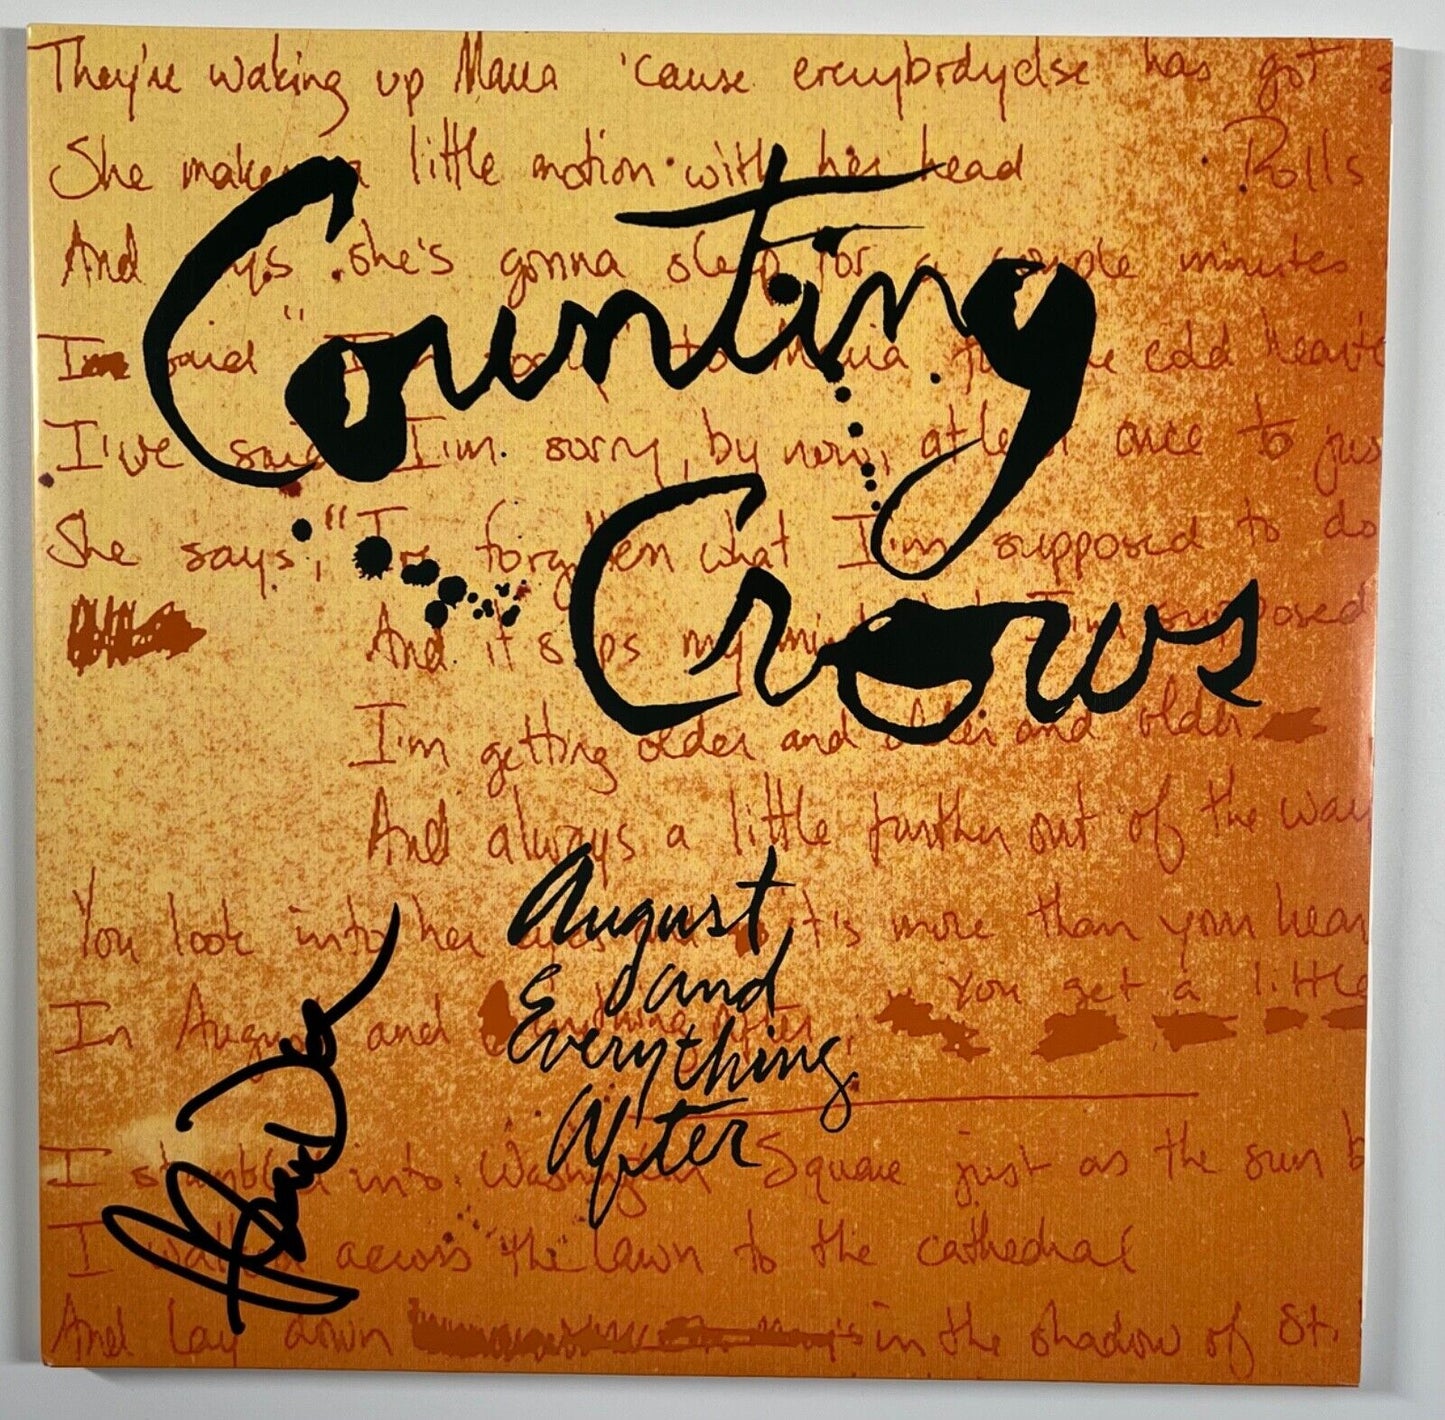 They're waking up Maria 'cause everybodyelse has got
She makes a little motion with her head Rolls
And says she's gonna sleep for a couple minutes
Counting
I said "I'm to Maria for the cold hearte
I've said I'm sorry, by now, at least once to jus
Crows
She says, "I've forgotten what I'm supposed to do
And it slips my mind I'm supposed
I'm getting older and older and older
And always a little further out of the way
August
and
Everything
After
You look into her it's more than your hear
You get a little
In August and Everything After,
I stumbled into Washington Square just as the sun b
I walked across the lawn to the cathedral
And lay down in the shadow of St.